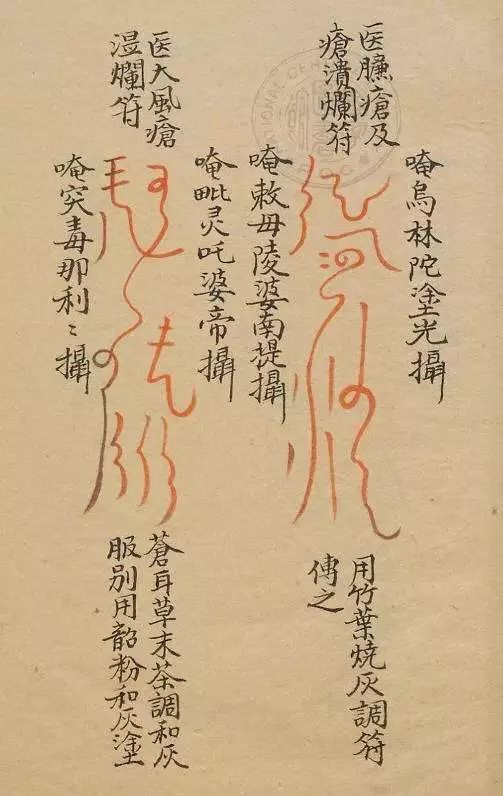 医臁瘡及
瘡潰爛符
唵烏林陀塗光攝
唵敕毋陵婆南提攝
用竹葉燒灰調符
傅之
医大風瘡
湿爛符
唵毗灵吒婆帝攝
唵突毒那利〻攝
蒼耳草末茶調和灰
服别用韶粉和灰塗